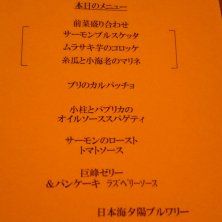 本日のメニュー
前菜盛り合わせ
サーモンブルスケッタ
ムラサキ芋のコロッケ
糸瓜と小海老のマリネ
ブリのカルパッチョ
小柱とパプリカの
オイルソーススパゲティ
サーモンのロースト
トマトソース
巨峰ゼリー
&パンケーキ ラズベリーソース
日本海夕陽ブルワリー